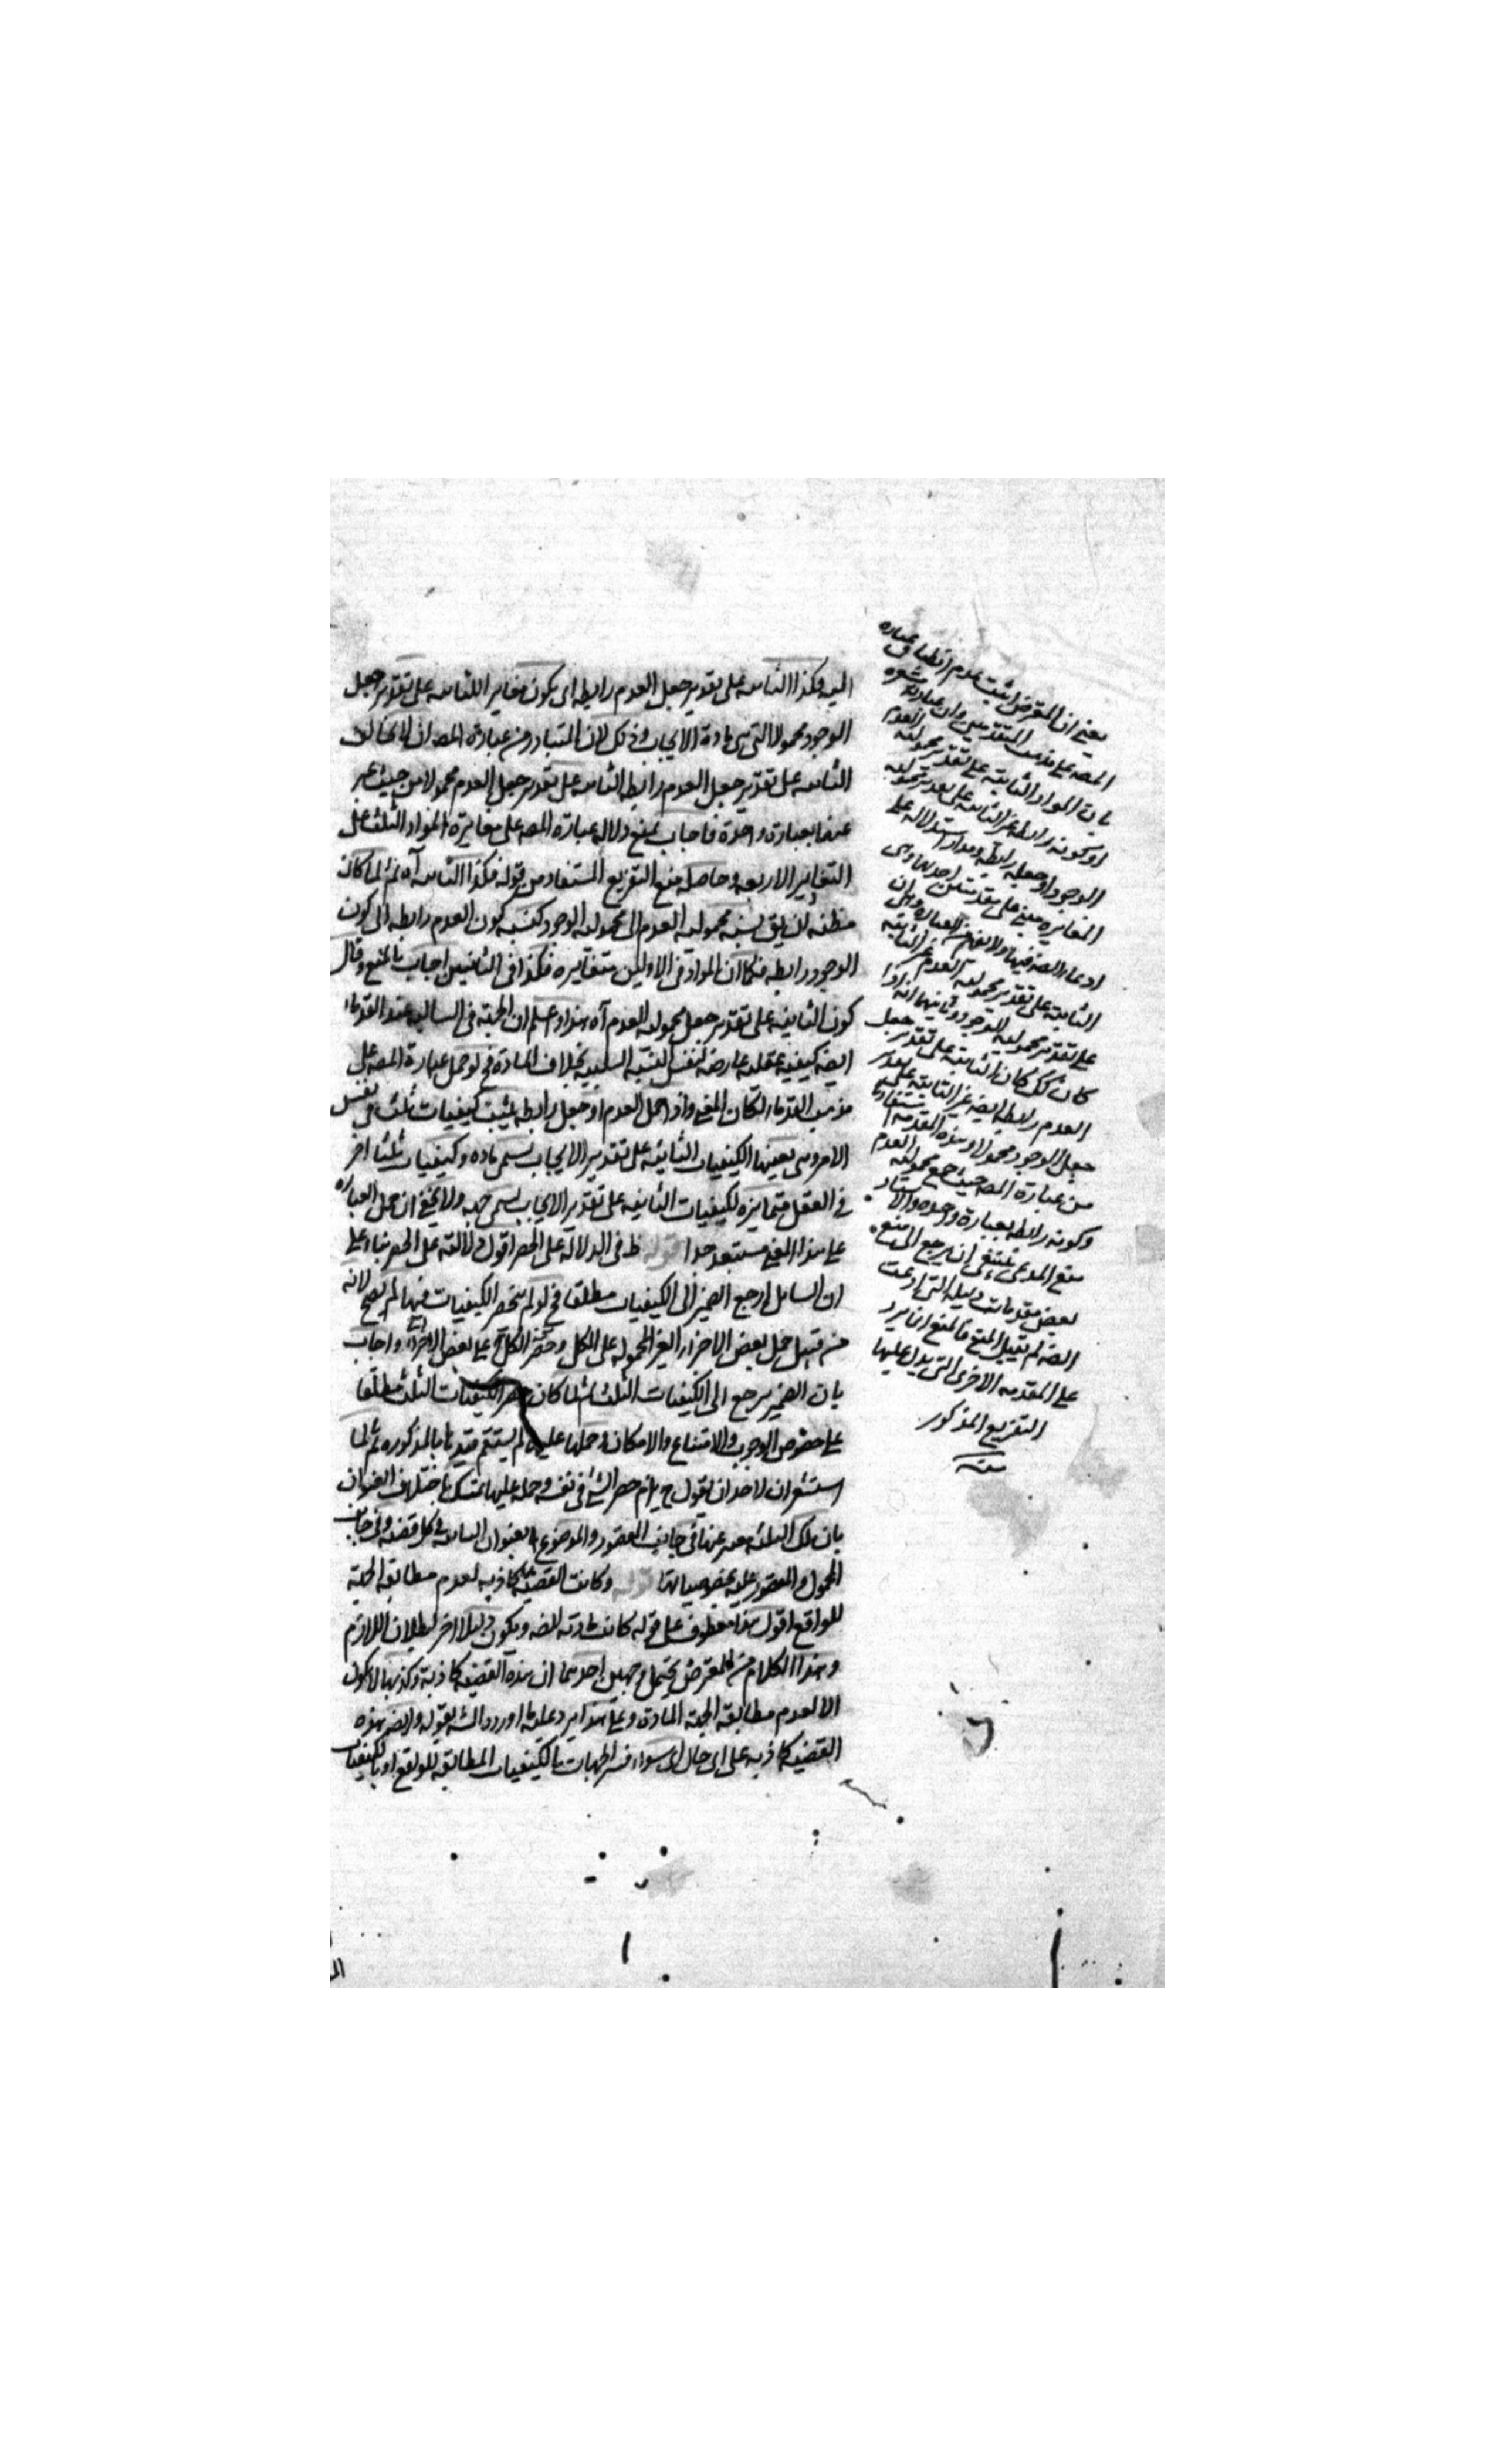 اليه فكذا الثابته على تقدير جعل العدم رابطه اى يكون مغاير اللثابته على تقدير جعل
الوجود محمولا التى هى مادة الايجاب وذلك لان المتبادر من عبارة المصـ ان لا يخالف
الثابته على تقدير جعل العدم رابطه الثابته على تقدير جعل العدم محمولا من حيث عبر
عنهما بعبارة واحدة فاجاب بمنع دلالة عبارة المصـ على مغايرة المواد الثلث على
التقادير الاربعه وحاصله منع التفريع المستفاد من قوله فكذا الثابته آه ثم لما كان
مظنه لان يق نسبه محموليه العدم الى محموليه الوجود كنسبه كون العدم رابطه الى كون
الوجود رابطه فكما ان المواد فى الاولين متغايره فكذا فى الثانيين اجاب بالمنع وقال
كون الثابته على تقدير جعل محموليه العدم آه هذا واعلم ان الجهة فى السالبه عند القدماء
ايضه كيفيه عقليه عارضه لنفس النسبه السلبيه بخلاف المادة فح لو حمل عبارة المصـ على
مذهب القدماء لكان المعنى واذا حمل العدم او جعل رابطه يثبت كيفيات ثلث فى نفس
الامر وهى بعينها الكيفيات الثابته على تقدير الايجاب يسمى ماده وكيفيات ثلثا اخر
فى العقل متمايزه لكيفيات الثابته على تقدير الايجاب يسمى جهه ولا يخفى ان حمل العباره
على هذا المعنى مستبعد جدا قوله ظ فى الدلالة على الحصر اقول دلالته على الحصر بناء على
ان السائل ارجع الضمير الى الكيفيات مطلقا فح لو لم ينحصر الكيفيات فيها لم يصح لانه
من قبيل حمل بعض الاجزاء الغير المحموله على الكل وحصر الكل على بعض الاجزاء واجاب
بان الضمير يرجع الى الكيفيات الثلث ثم لما كان حصر الكيفيات الثلث مطلقا
على خصوص الوجوب والامتناع والامكان وحملها عليها لم يستقم قيدها بالمذكوره ثم لما
استشعر ان لاحد ان يقول ح يلزم حصر الشئ فى نفسه وحمله عليها تمسك باختلاف العنوان
بان تلك الثلثه معبر عنها فى جانب المقصور والموضوع بعنوان الثابته فى كل قضيه وفى جانب
المحمول والمقصور عليه بخصوصياتها قوله وكانت القضيه كاذبه لعدم مطابقه الجهة
للواقع اقول هذا معطوف على قوله كانت ويكون دليلا اخر لبطلان اللازم
وهذا الكلام من المعترض يحتمل وجهين احدهما ان هذه القضيه كاذبة وكذبها لا يكون
الا لعدم مطابقه الجهة المادة وعلى هذا يرد عليه ما اورده الشه بقوله وايضه هذه
القضيه كاذبه على اى حال اى سواء فسر الجهات بالكيفيات المطابقه للواقع او بالكيفيات
يعنى ان المعترض اثبت عدم انطباق عباره
المصـ على مذهب المتقدمين وان عبارته مشعره
بان المواد الثابته على تقدير محموليه العدم
او كونه رابطه غير الثابته على تقدير محموليه
الوجود او جعله رابطه ومدار استدلاله على
المغايره مبنى على مقدمتين احديهما وهى
الثابته على تقدير محموليه العدم غير الثابته
على تقدير محموليه الوجود وثانيهما انه اذا
كان كك كان الثابته على تقدير جعل
العدم رابطه ايضه غير الثابته على تقدير
جعل الوجود محمولا وهذه المقدمه مستفاده
من عبارة المصـ حيث جمع محموليه العدم
وكونه رابطه بعبارة واحده والاستاد
منع المدعى فينبغى ان يرجع الى منع
بعض مقدمات دليله التى ادعت
الضـ لم يقبل المنع فالمنع انما يرد
على المقدمه الاخرى التى يدل عليها
التفريع المذكور
منه